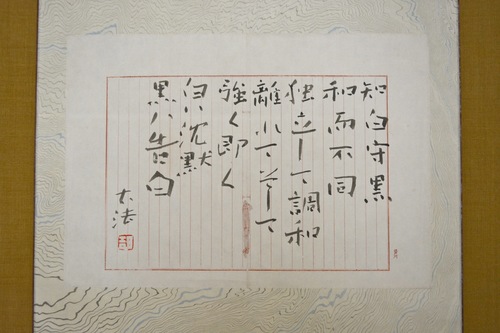 知白守黒
和而不同
独立して調和
離れてそして
強く即く
白ハ沈黙
黒ハ告白
大法